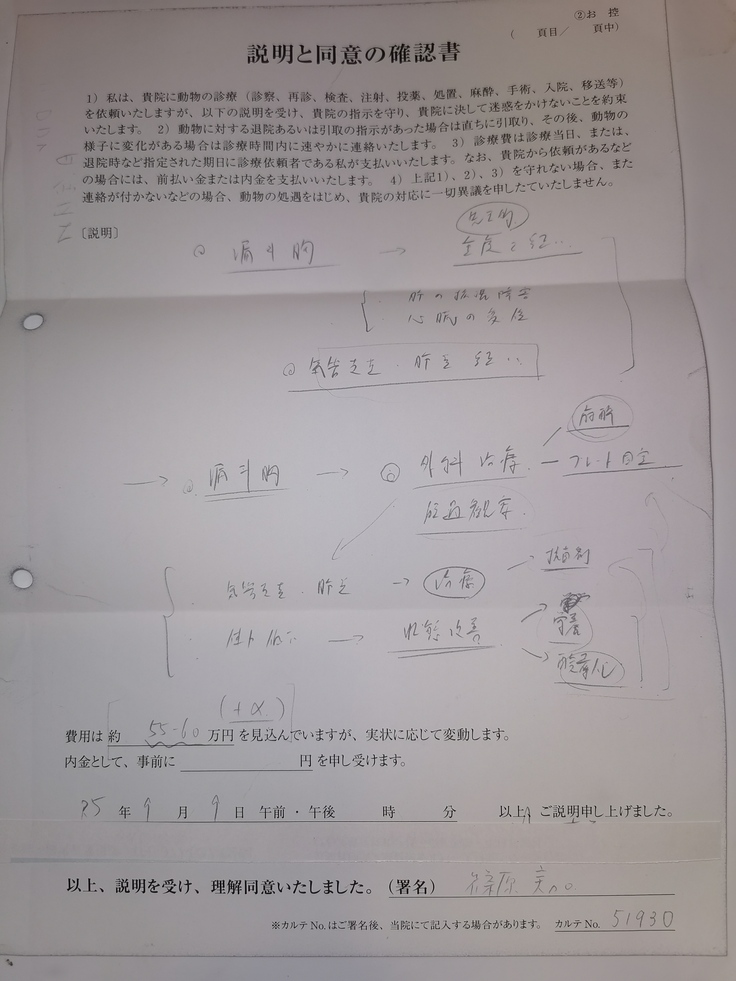 ②お 控
( 頁目/ 頁中)
説明と同意の確認書
1）私は、貴院に動物の診療（診察、再診、検査、注射、投薬、処置、麻酔、手術、入院、移送等）
を依頼いたしますが、以下の説明を受け、貴院の指示を守り、貴院に決して迷惑をかけないことを約束
いたします。 2）動物に対する退院あるいは引取の指示があった場合は直ちに引取り、その後、動物の
様子に変化がある場合は診療時間内に速やかに連絡いたします。 3）診療費は診療当日、または、
退院時など指定された期日に診療依頼者である私が支払いいたします。なお、貴院から依頼があるなど
の場合には、前払い金または内金を支払いいたします。 4）上記1）、2）、3）を守れない場合、また
連絡が付かないなどの場合、動物の処遇をはじめ、貴院の対応に一切異議を申したていたしません。
〔説明〕
先天的
漏斗胸 →
肺の拡張障害
心臓の変位
胸骨
→ 漏斗胸 → 外科治療 — プレート固定
経過観察
→ 治療 → 抗菌剤
→ 状態改善
(+α)
費用は 約 55-60 万円を見込んでいますが、実状に応じて変動します。
内金として、事前に 円を申し受けます。
25 年 9 月 9 日 午前・午後 時 分 以上、ご説明申し上げました。
以上、説明を受け、理解同意いたしました。（署名） 篠原
※カルテNo.はご署名後、当院にて記入する場合があります。 カルテNo. 51930